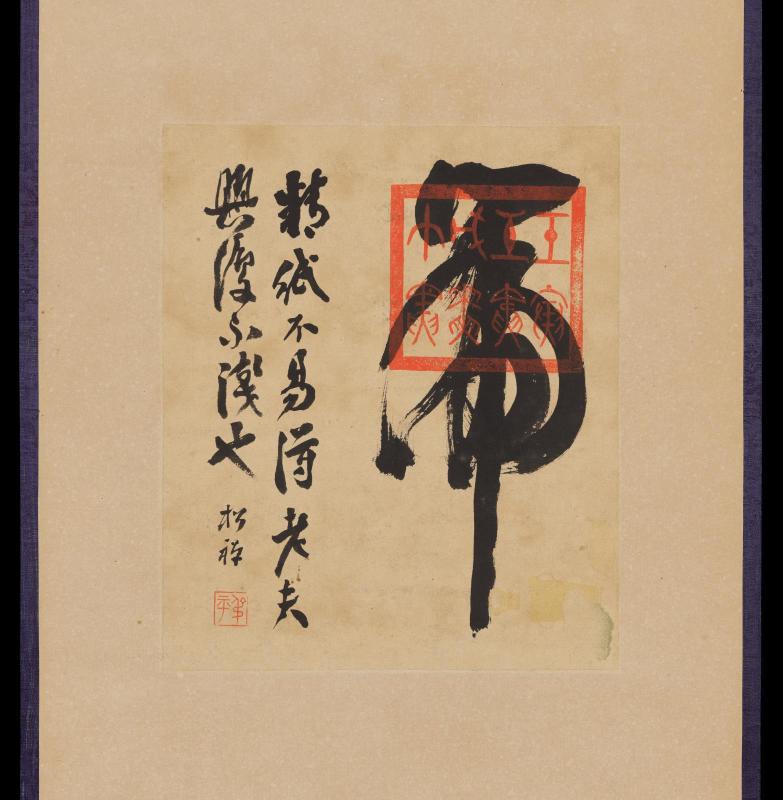 虎
精紙不易得老夫
興復不淺也
松禪